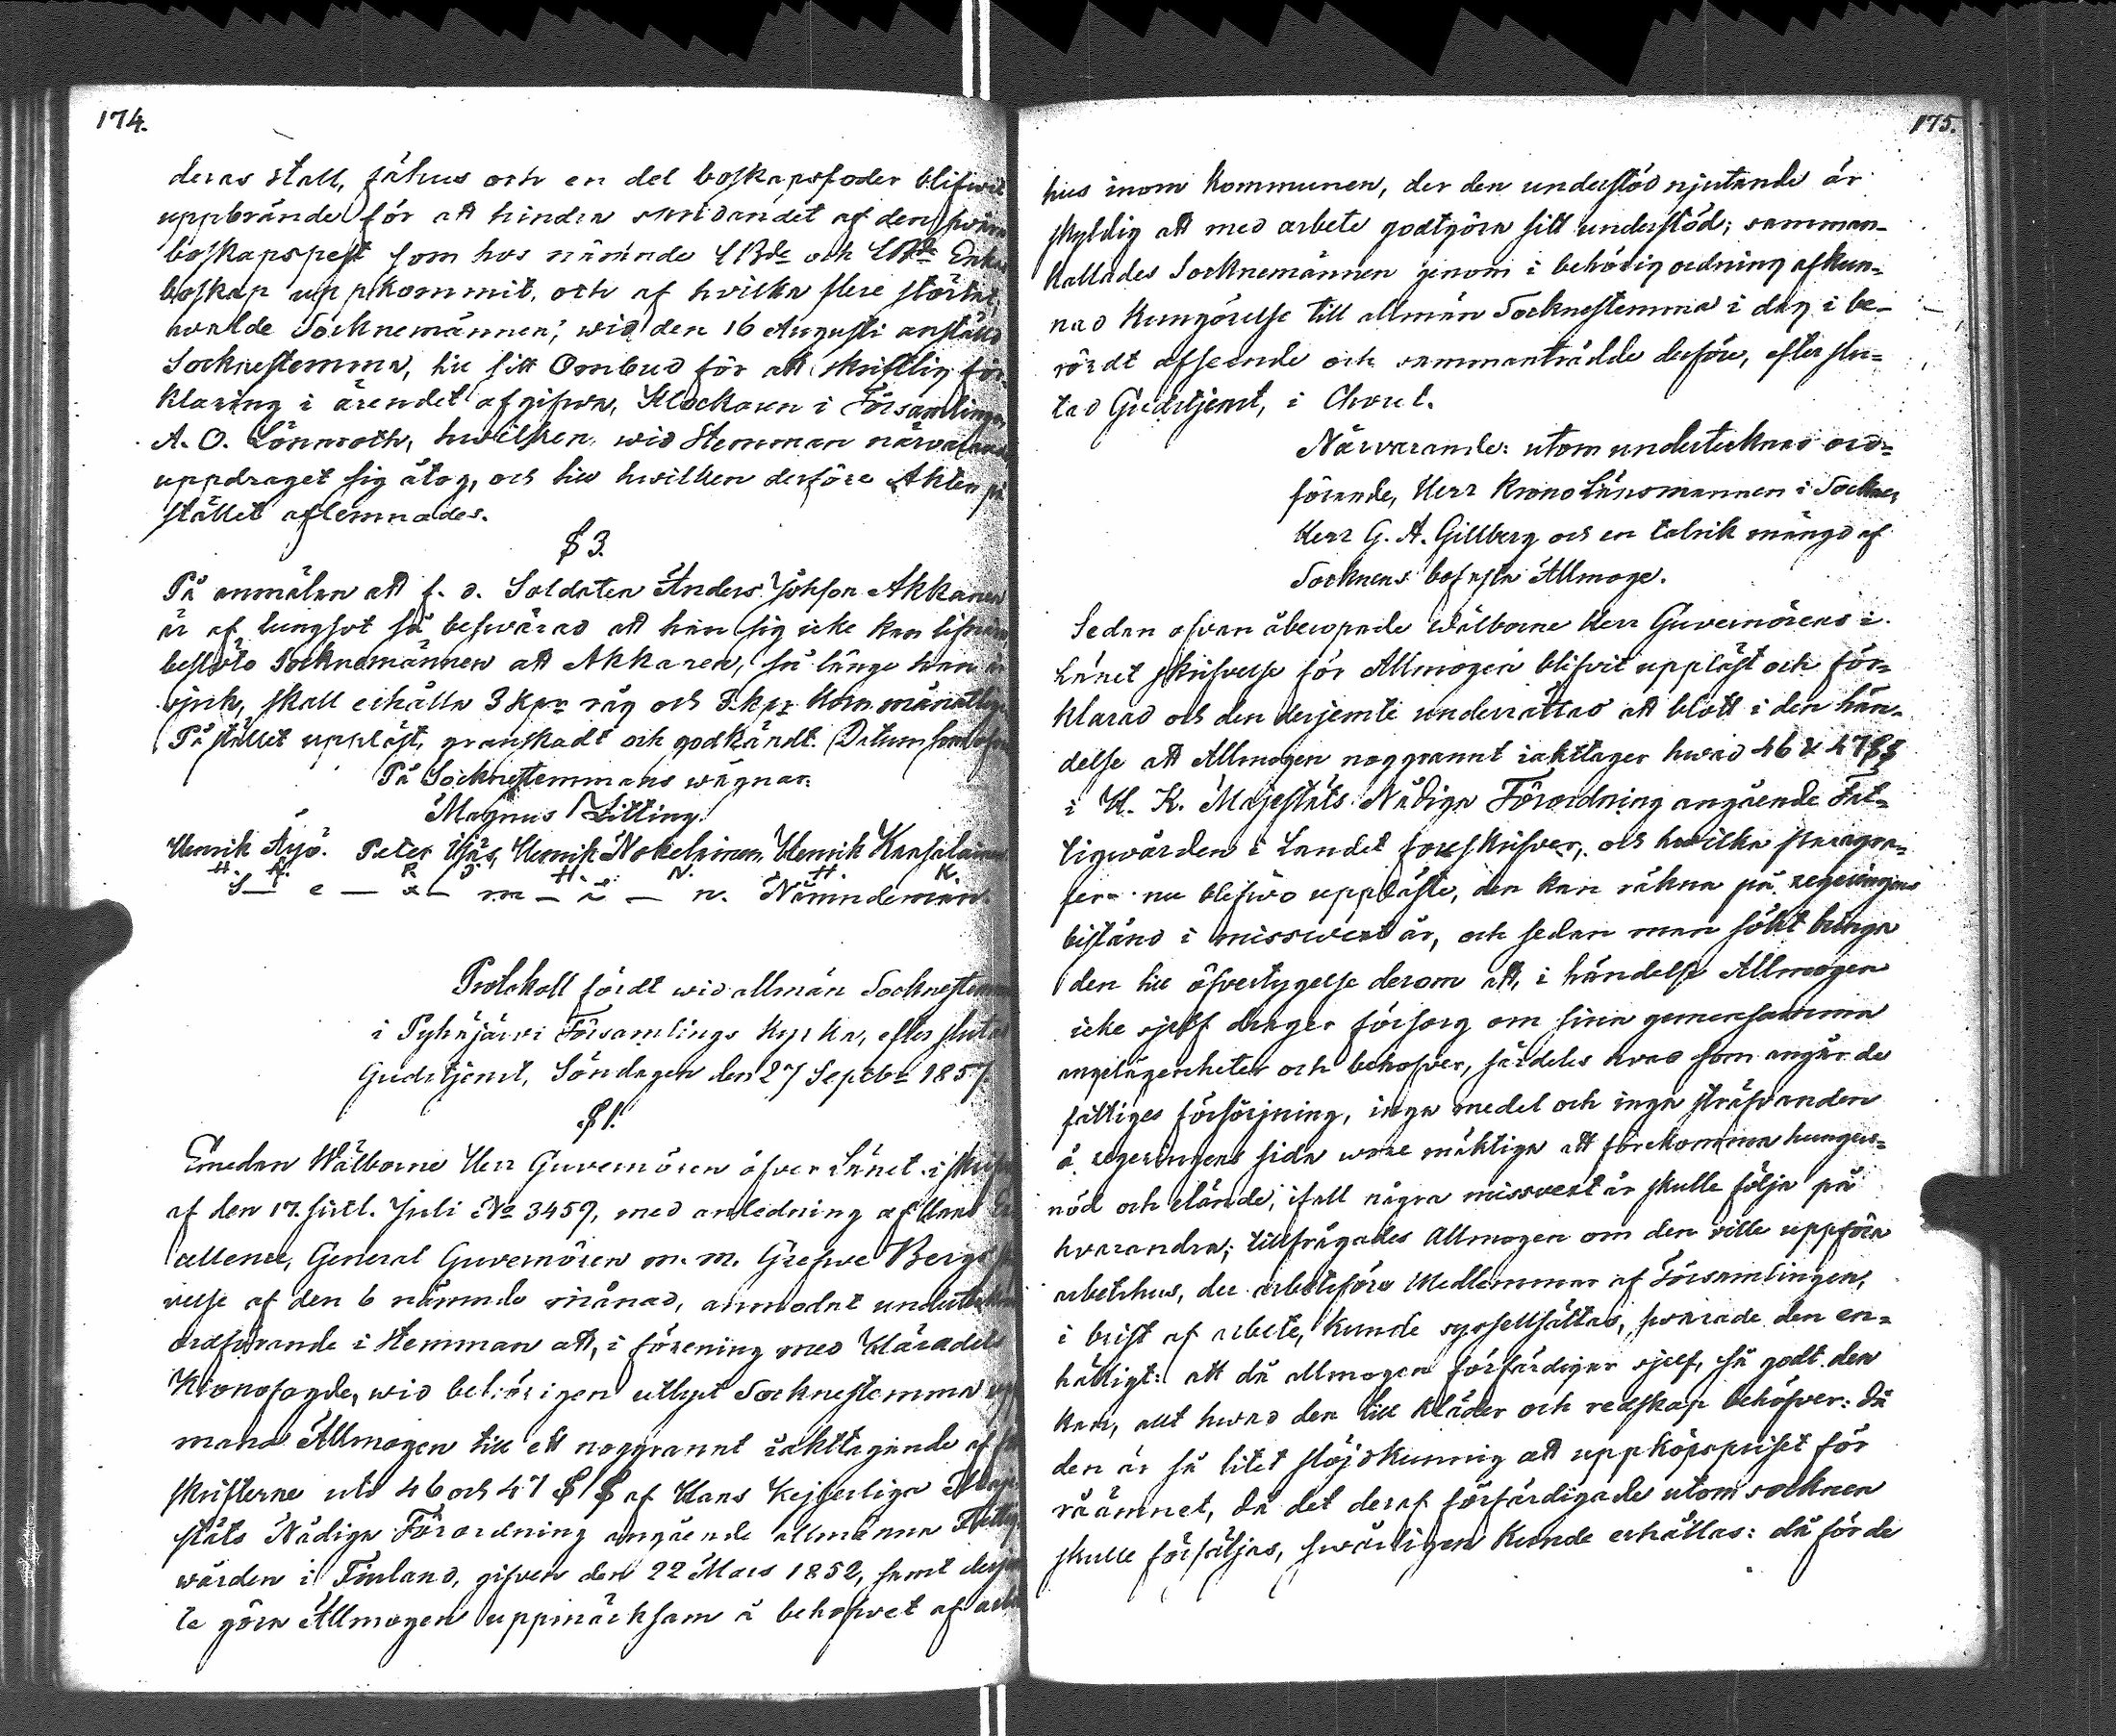 174.
deras stall, fähus och en del boskapsfoder blifwit
uppbrände för att hindra skridandet af den svåra
boskapspest som hos nämnde och Enkas
boskap uppkommit, och af hvilka flere störtat,
walde Socknemännen, wid den 16 Augusti anställd
Socknestemma, till sitt Ombud för att skriftlig för-
klaring i ärendet afgifwa, Klockaren i Församlingen
A. O. Lönnroth, hwilken, wid Stemman närvarande
uppdraget sig åtog, och till hwilken derföre Akten på
stället aflemnades.
§ 3.
På anmälan att f. d. Soldaten Anders Johsson Akkanen
är af lungsot så beswärad att han sig icke kan lifnära,
beslöto Socknemännen att Akkanen, så länge han är
sjuk, skall erhålla 3 kpr råg och 3 kpr korn månatligen
På stället uppläst, granskadt och godkändt. Datum som ofvan
På Socknestemmans wägnar:
Magnus Litting.
Henrik Äijö. Peter Henrik Nokelainen, Henrik Kansalainen
H. Ä. P. H. N. H. K.
S — e — x — m — ä — n. Nämndemän.
Protokoll fördt wid allmän Socknestemma
i Pyhäjärvi Församlings kyrka, efter slutad
Gudstjenst, Söndagen den 27 Septbr 1857.
§ 1.
Emedan Wälborne Herr Guvernören öfver Länet i skrifvelse
af den 17. sistl. Juli No 3459, med anledning af Hans Ex-
cellence, General Guvernören m. m. Grefwe Bergs skri-
velse af den 6 nämnde månad, anmodat undertecknad
ordförande i Stemman att, i förening med Häradets
Kronofogde, wid behörigen utlyst Socknestemma upp-
mana Allmogen till ett noggrannt iakttagande af före-
skrifterne uti 46 och 47 § § af Hans Kejserliga Maje-
stäts Nådiga Förordning angående allmänna Fattig-
wården i Finland, gifven den 22 Mars 1852, samt derjem-
te göra Allmogen uppmärksam å behofwet af arbets-
175.
hus inom kommunen, der den understöd njutande är
skyldig att med arbete godtgöra sitt understöd; samman-
kallades Socknemännen genom i behörig ordning afkun-
nad kungörelse till allmän Socknestemma i dag i be-
rördt afseende och sammanträdde derföre, efter slu-
tad Gudstjenst, i Choret.
Närvarande: utom undertecknad ord-
förande, Herr Krono Länsmannen i Socknen
Herr G. A. Gillberg och en talrik mängd af
Socknens bofasta Allmoge.
Sedan ofvan åberopade Wälborne Herr Guvernörens i
Länet skrifvelse för Allmogen blifvit uppläst och för-
klarad och den derjemte underrättad att blott i den hän-
delse att Allmogen noggrannt iakttager hwad 46 & 47 §§
i H. K. Majestäts Nådiga Förordning angående Fat-
tigwården i Landet föreskrifver, och hwilka paragra-
fer nu blifwo uppläste, den kan räkna på regeringens
bistånd i misswext år, och sedan man sökt bringa
den till öfvertygelse derom att, i händelse Allmogen
icke sjelf drager försorg om sina gemensamma
angelägenheter och behofver, särdeles hvad som angår de
fattiges försörjning, inga medel och inga sträfvanden
å regeringens sida wore mäktiga att förekomma hungers-
nöd och elände, ifall några missvext år skulle följa på
hvarandra; tillfrågades Allmogen om den ville uppföra
arbetshus, der arbetsföra Medlemmar af Församlingen,
i brist af arbete, kunde sysselsättas, svarade den en-
hälligt: att då allmogen förfärdigar sjelf, så godt den
kan, allt hwad den till kläder och redskap behöfver: då
den är så litet slöjdkunnig att uppköpspriset för
råämnet, då det deraf förfärdigade utom socknen
skulle försäljas, swårligen kunde erhållas: då för de